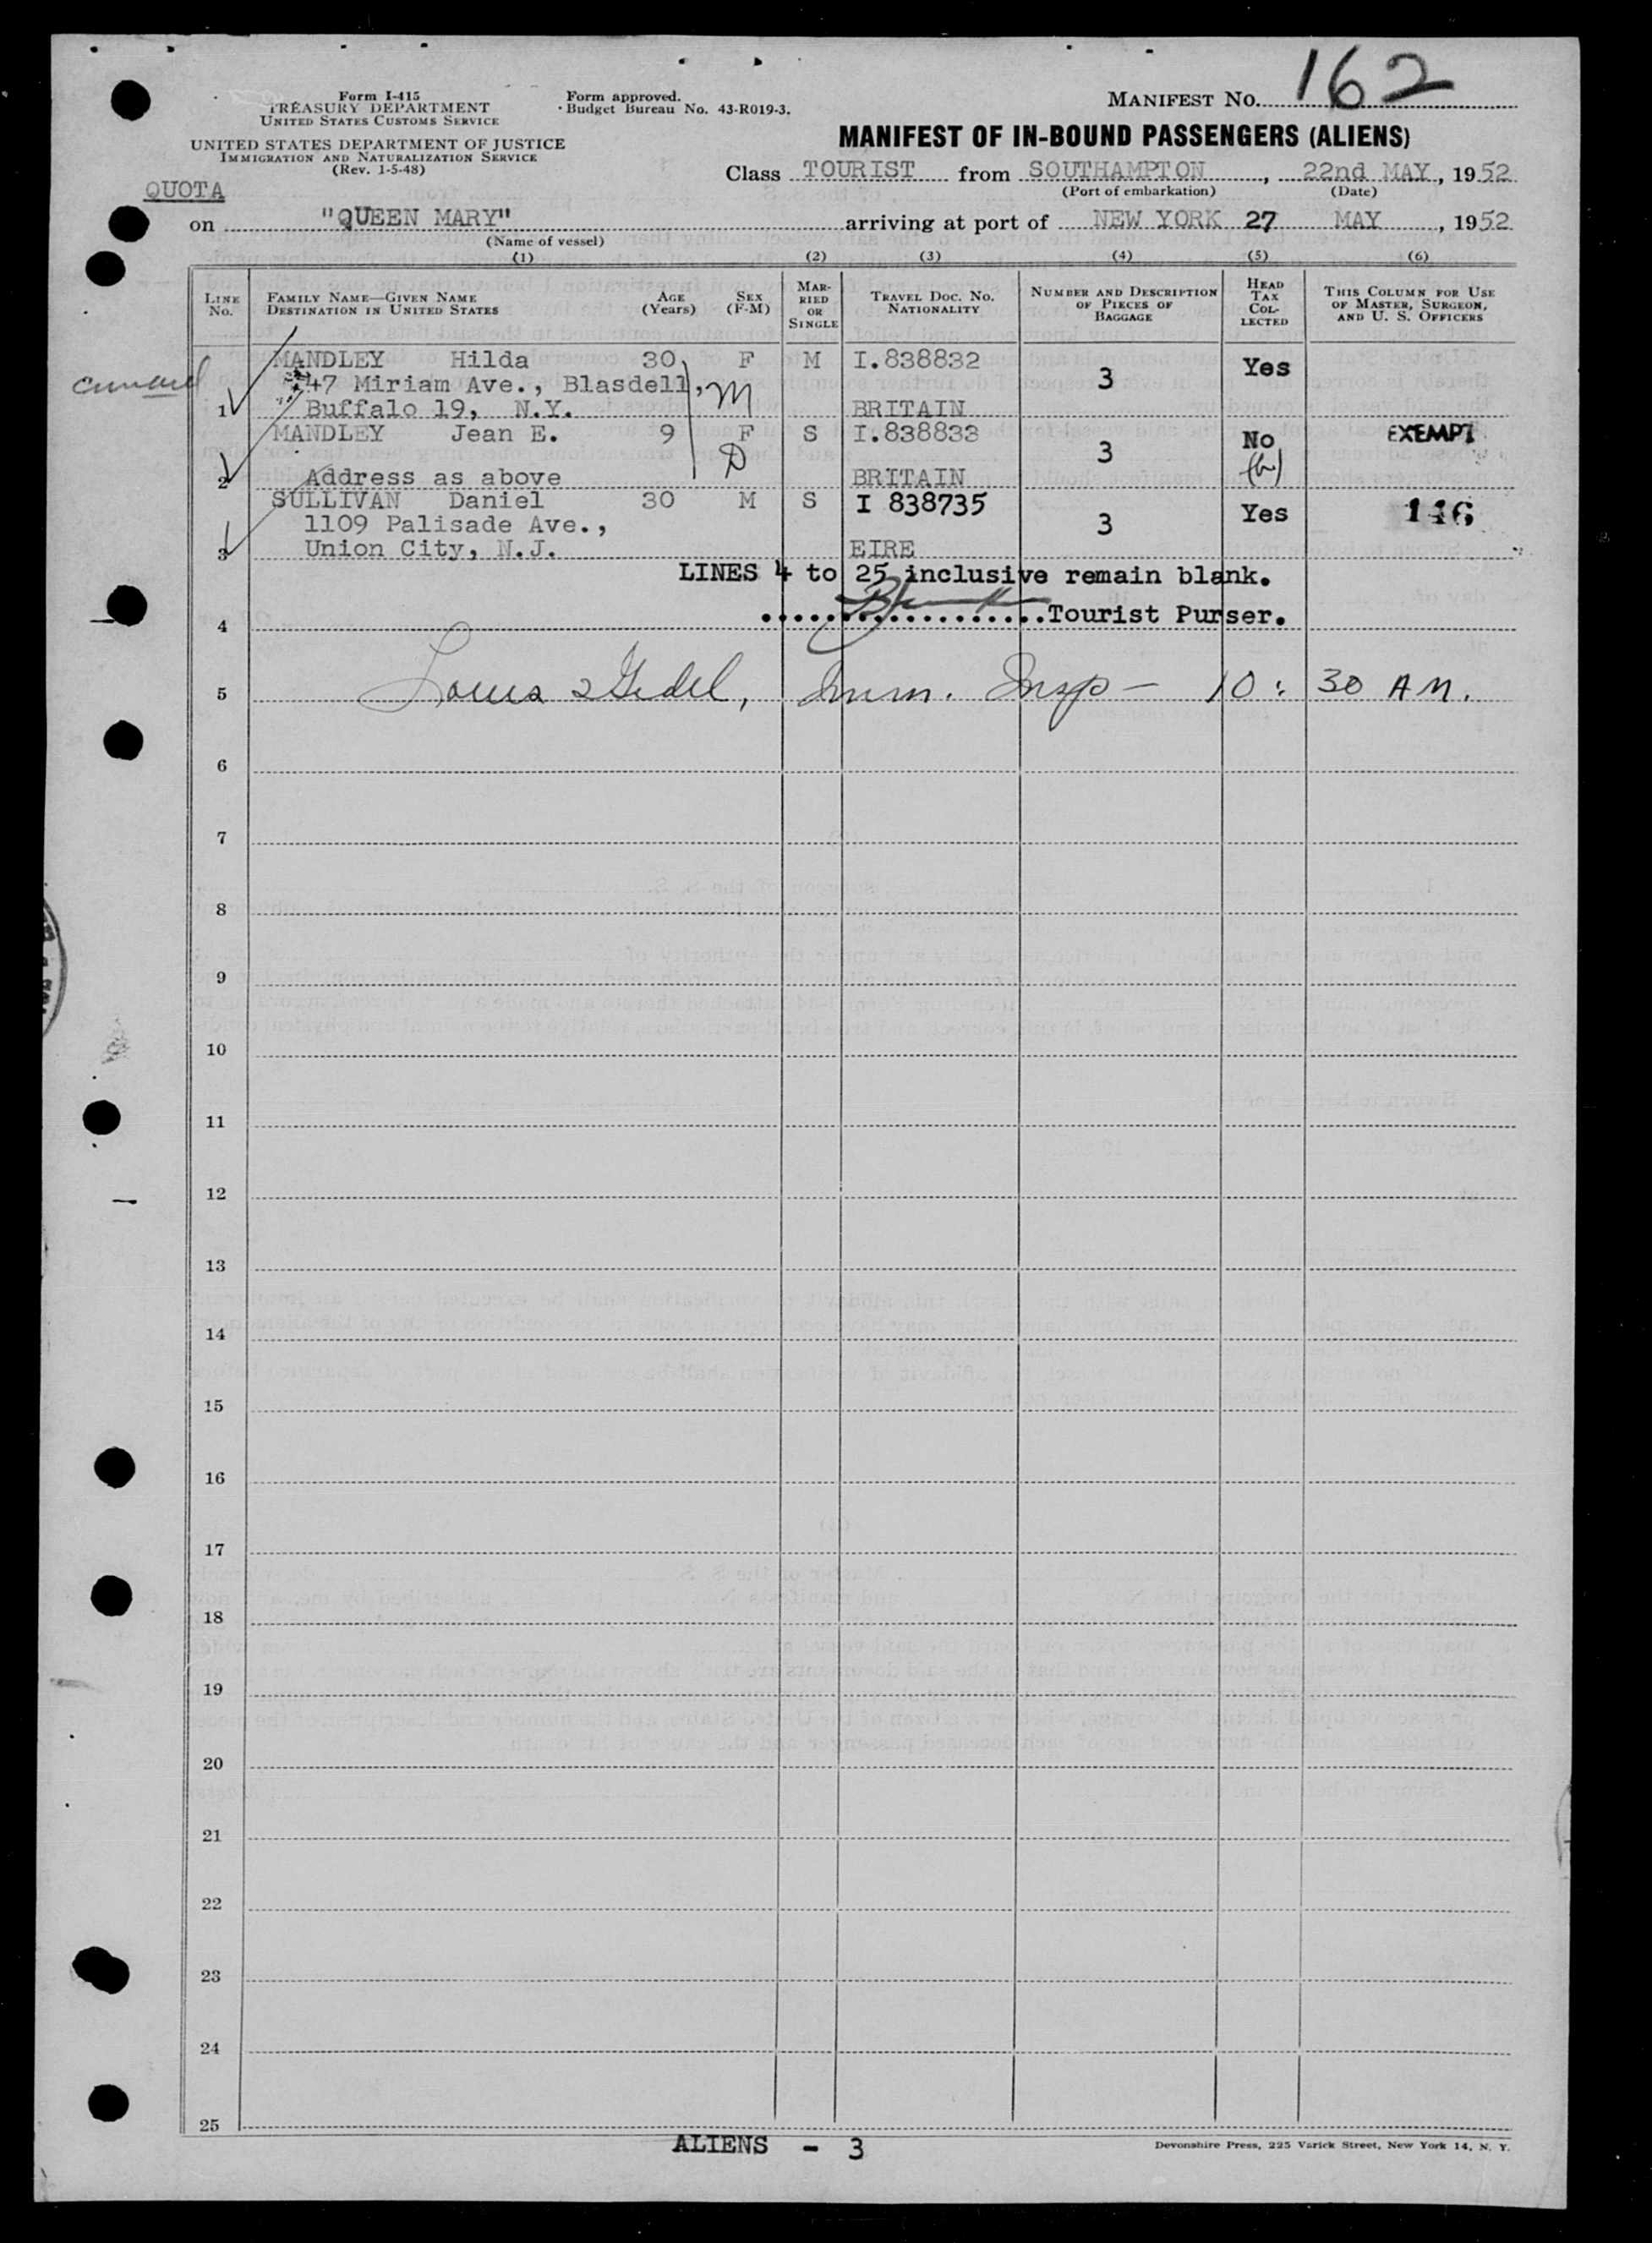 162
Form I-415
TREASURY DEPARTMENT
UNITED STATES CUSTOMS SERVICE
Form approved.
Budget Bureau No. 43-R019-3.
MANIFEST NO.
UNITED STATES DEPARTMENT OF JUSTICE
IMMIGRATION AND NATURALIZATION SERVICE
(Rev. 1-5-48)
MANIFEST OF IN-BOUND PASSENGERS (ALIENS)
Class TOURIST from SOUTHAMPTON, 22nd MAY, 1952
(Port of embarkation) (Date)
QUOTA
on "QUEEN MARY" arriving at port of NEW YORK 27 MAY, 1952
(Name of vessel)
(1) (2) (3) (4) (5) (6)
LINE No. FAMILY NAME—GIVEN NAME DESTINATION IN UNITED STATES AGE (Years) SEX (F-M) MARRIED OR SINGLE TRAVEL DOC. NO. NATIONALITY NUMBER AND DESCRIPTION OF PIECES OF BAGGAGE HEAD TAX COLLECTED THIS COLUMN FOR USE OF MASTER, SURGEON, AND U. S. OFFICERS
MANDLEY Hilda 30 F M I.838832 3 Yes
47 Miriam Ave., Blasdell, M
1 Buffalo 19, N.Y. BRITAIN
MANDLEY Jean E. 9 F S I.838833 3 No EXEMPT
D
2 Address as above BRITAIN
SULLIVAN Daniel 30 M S I 838735 3 Yes
1109 Palisade Ave.,
3 Union City, N.J. EIRE
LINES 4 to 25 inclusive remain blank.
4 Tourist Purser.
5 Imm. Insp — 10:30 AM.
6
7
8
9
10
11
12
13
14
15
16
17
18
19
20
21
22
23
24
25
ALIENS - 3
Devonshire Press, 225 Varick Street, New York 14, N. Y.